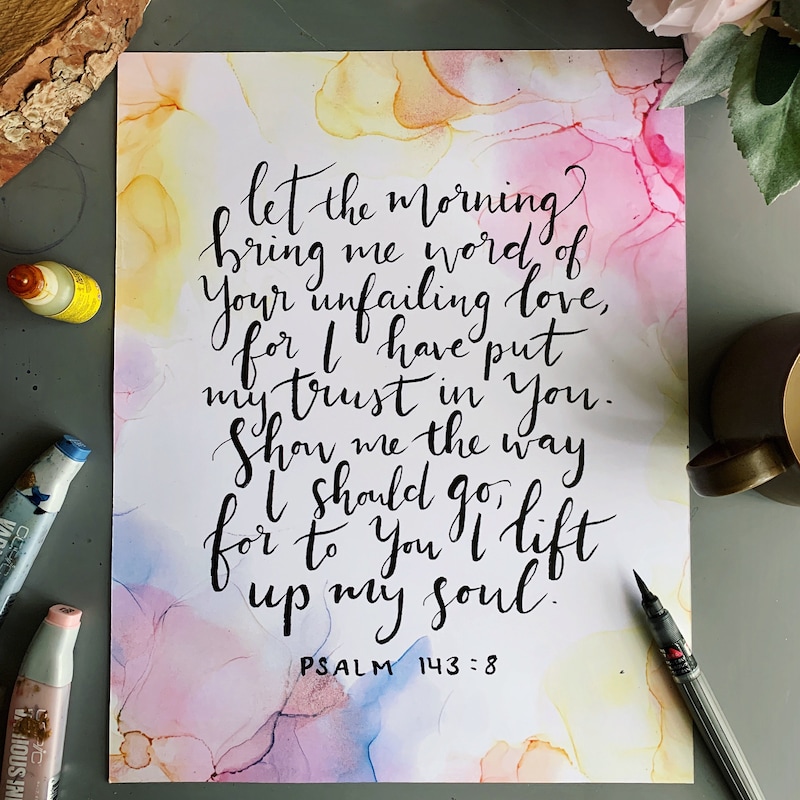 let the morning
bring me word of
Your unfailing love,
for I have put
my trust in You.
Show me the way
I should go,
for to You I lift
up my soul.
PSALM 143:8